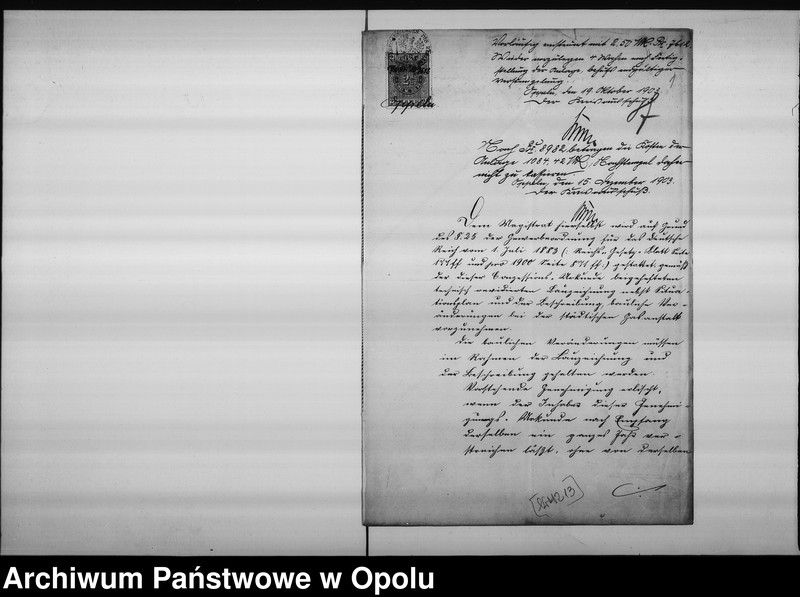 Vorläufig versteuert mit 2,50 M.
Wieder vorzulegen 4 Wochen nach Fertig-
stellung der Anlage, behufs endgültiger
Versteuerung.
Oppeln, den 19. Oktober 1902
Der Kreisausschuß
Oppeln
Nach 8982 betragen die Kosten der
Anlage 1084,42 M, Nachstempel daher
nicht zu kassieren.
Oppeln, den 15. Dezember 1903.
Der Kreisausschuß.
Dem Magistrat hierselbst wird auf Grund
des § 25 der Gewerbeordnung für das Deutsche
Reich vom 1. Juli 1883 (: Reichs-Gesetz-Blatt Seite
177 ff und pro 1900 Seite 871 ff) gestattet, gemäß
der dieser Konzessions-Urkunde beigehefteten
technisch revidierten Bauzeichnung nebst Situa-
tionsplan und der Beschreibung bauliche Ver-
änderungen bei der städtischen Gasanstalt
vorzunehmen.
Die baulichen Veränderungen müssen
im Rahmen der Bauzeichnung und
der Beschreibung gehalten werden.
Vorstehende Genehmigung erlischt,
wenn der Inhaber dieser Genehmi-
gungs-Urkunde nach Empfang
derselben ein ganzes Jahr ver-
streichen läßt, ohne von derselben
Archiwum Państwowe w Opolu